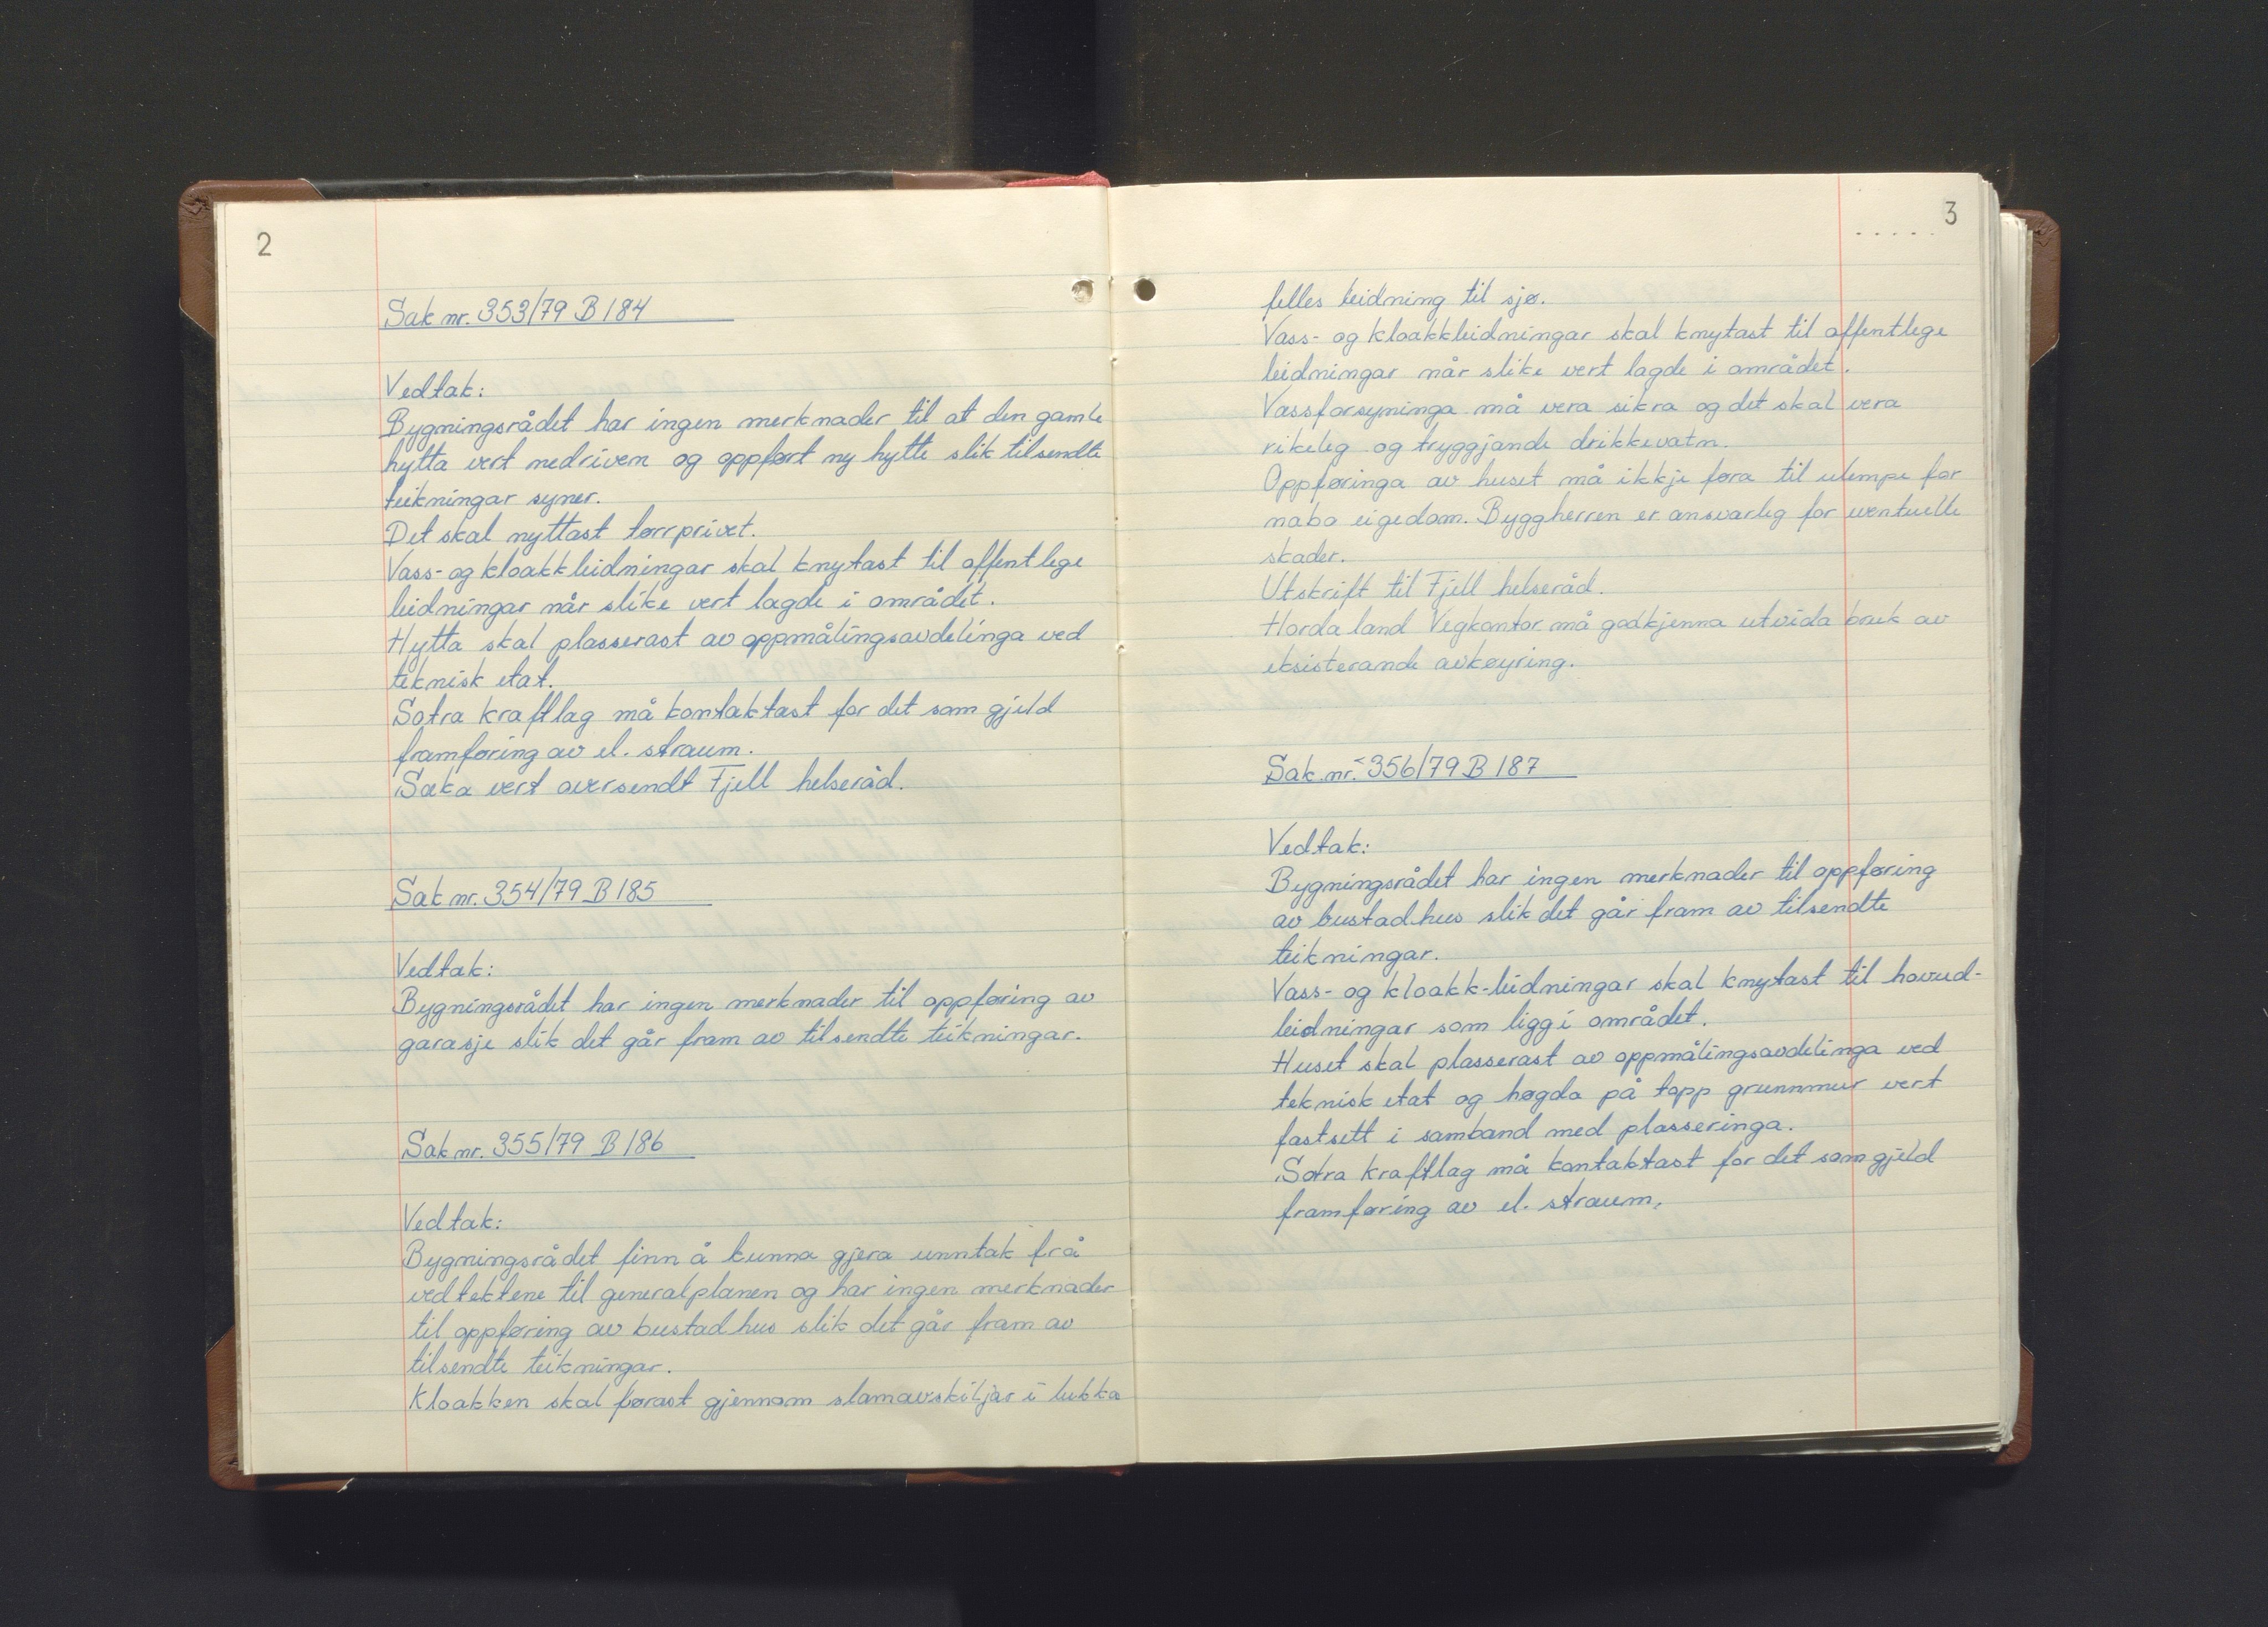 2
Sak nr. 353/79 B 184
Vedtak:
Bygningsrådet har ingen merknader til at den gamle
hytta vert nedriven og oppført ny hytte slik tilsendte
teikningar syner.
Det skal nyttast tørrprivet.
Vass- og kloakkleidningar skal knytast til offentlege
leidningar når slike vert lagde i området.
Hytta skal plasserast av oppmålingsavdelinga ved
teknisk etat.
Sotra kraftlag må kontaktast for det som gjeld
framføring av el. straum.
Saka vert oversendt Fjell helseråd.
Sak nr. 354/79 B 185
Vedtak:
Bygningsrådet har ingen merknader til oppføring av
garasje slik det går fram av tilsendte teikningar.
Sak nr. 355/79 B 186
Vedtak:
Bygningsrådet finn å kunna gjera unntak frå
vedtektene til generalplanen og har ingen merknader
til oppføring av bustadhus slik det går fram av
tilsendte teikningar.
Kloakken skal førast gjennom slamavskiljar i lukka
3
felles leidning til sjø.
Vass- og kloakkleidningar skal knytast til offentlege
leidningar når slike vert lagde i området.
Vassforsyninga må vera sikra og det skal vera
rikeleg og tryggjande drikkevatn.
Oppføringa av huset må ikkje føra til ulempe for
nabo eigedom. Byggherren er ansvarleg for eventuelle
skader.
Utskrift til Fjell helseråd.
Hordaland Vegkontor må godkjenna utvida bruk av
eksisterande avkøyring.
Sak nr. 356/79 B 187
Vedtak:
Bygningsrådet har ingen merknader til oppføring
av bustadhus slik det går fram av tilsendte
teikningar.
Vass- og kloakk-leidningar skal knytast til hovud-
leidningar som ligg i området.
Huset skal plasserast av oppmålingsavdelinga ved
teknisk etat og høgda på topp grunnmur vert
fastsett i samband med plasseringa.
Sotra kraftlag må kontaktast for det som gjeld
framføring av el. straum.